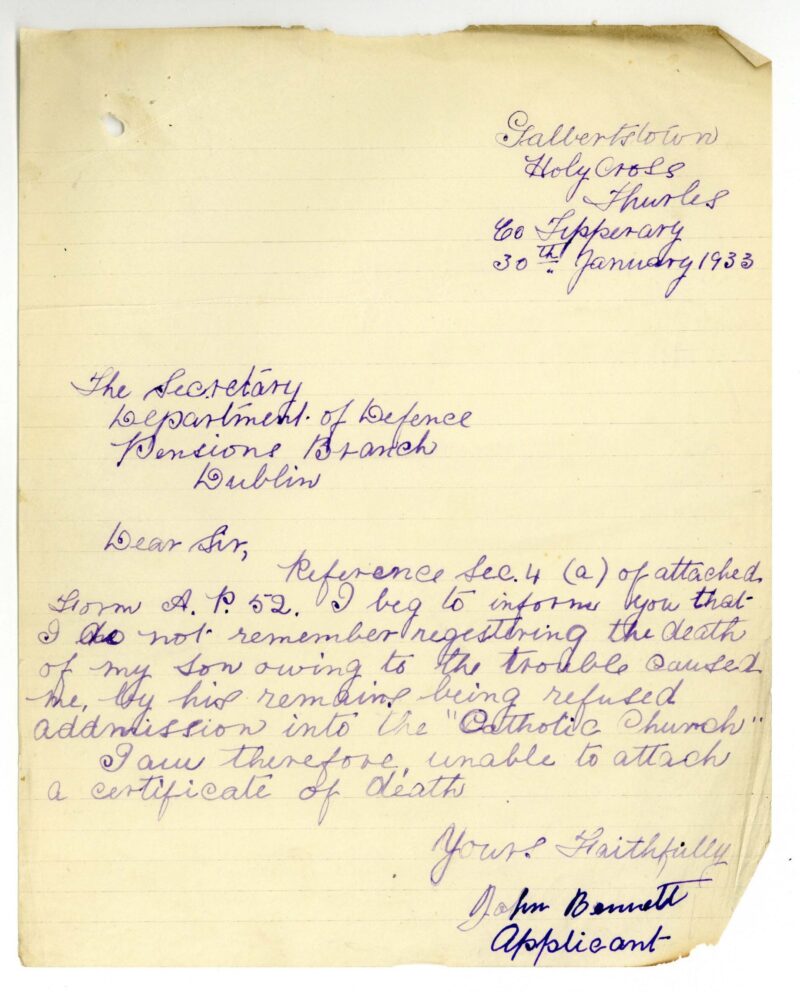 Galbertstown
Holy Cross
Thurles
Co Tipperary
30th January 1933
The Secretary
Department of Defence
Pensions Branch
Dublin
Dear Sir,
Reference Sec. 4 (a) of attached
Form A. P. 52. I beg to inform you that
I do not remember regestering the death
of my son owing to the trouble caused
me, by his remains being refused
addmission into the "Catholic Church"
I am therefore, unable to attach
a certificate of death
Yours Faithfully
John Bennett
Applicant